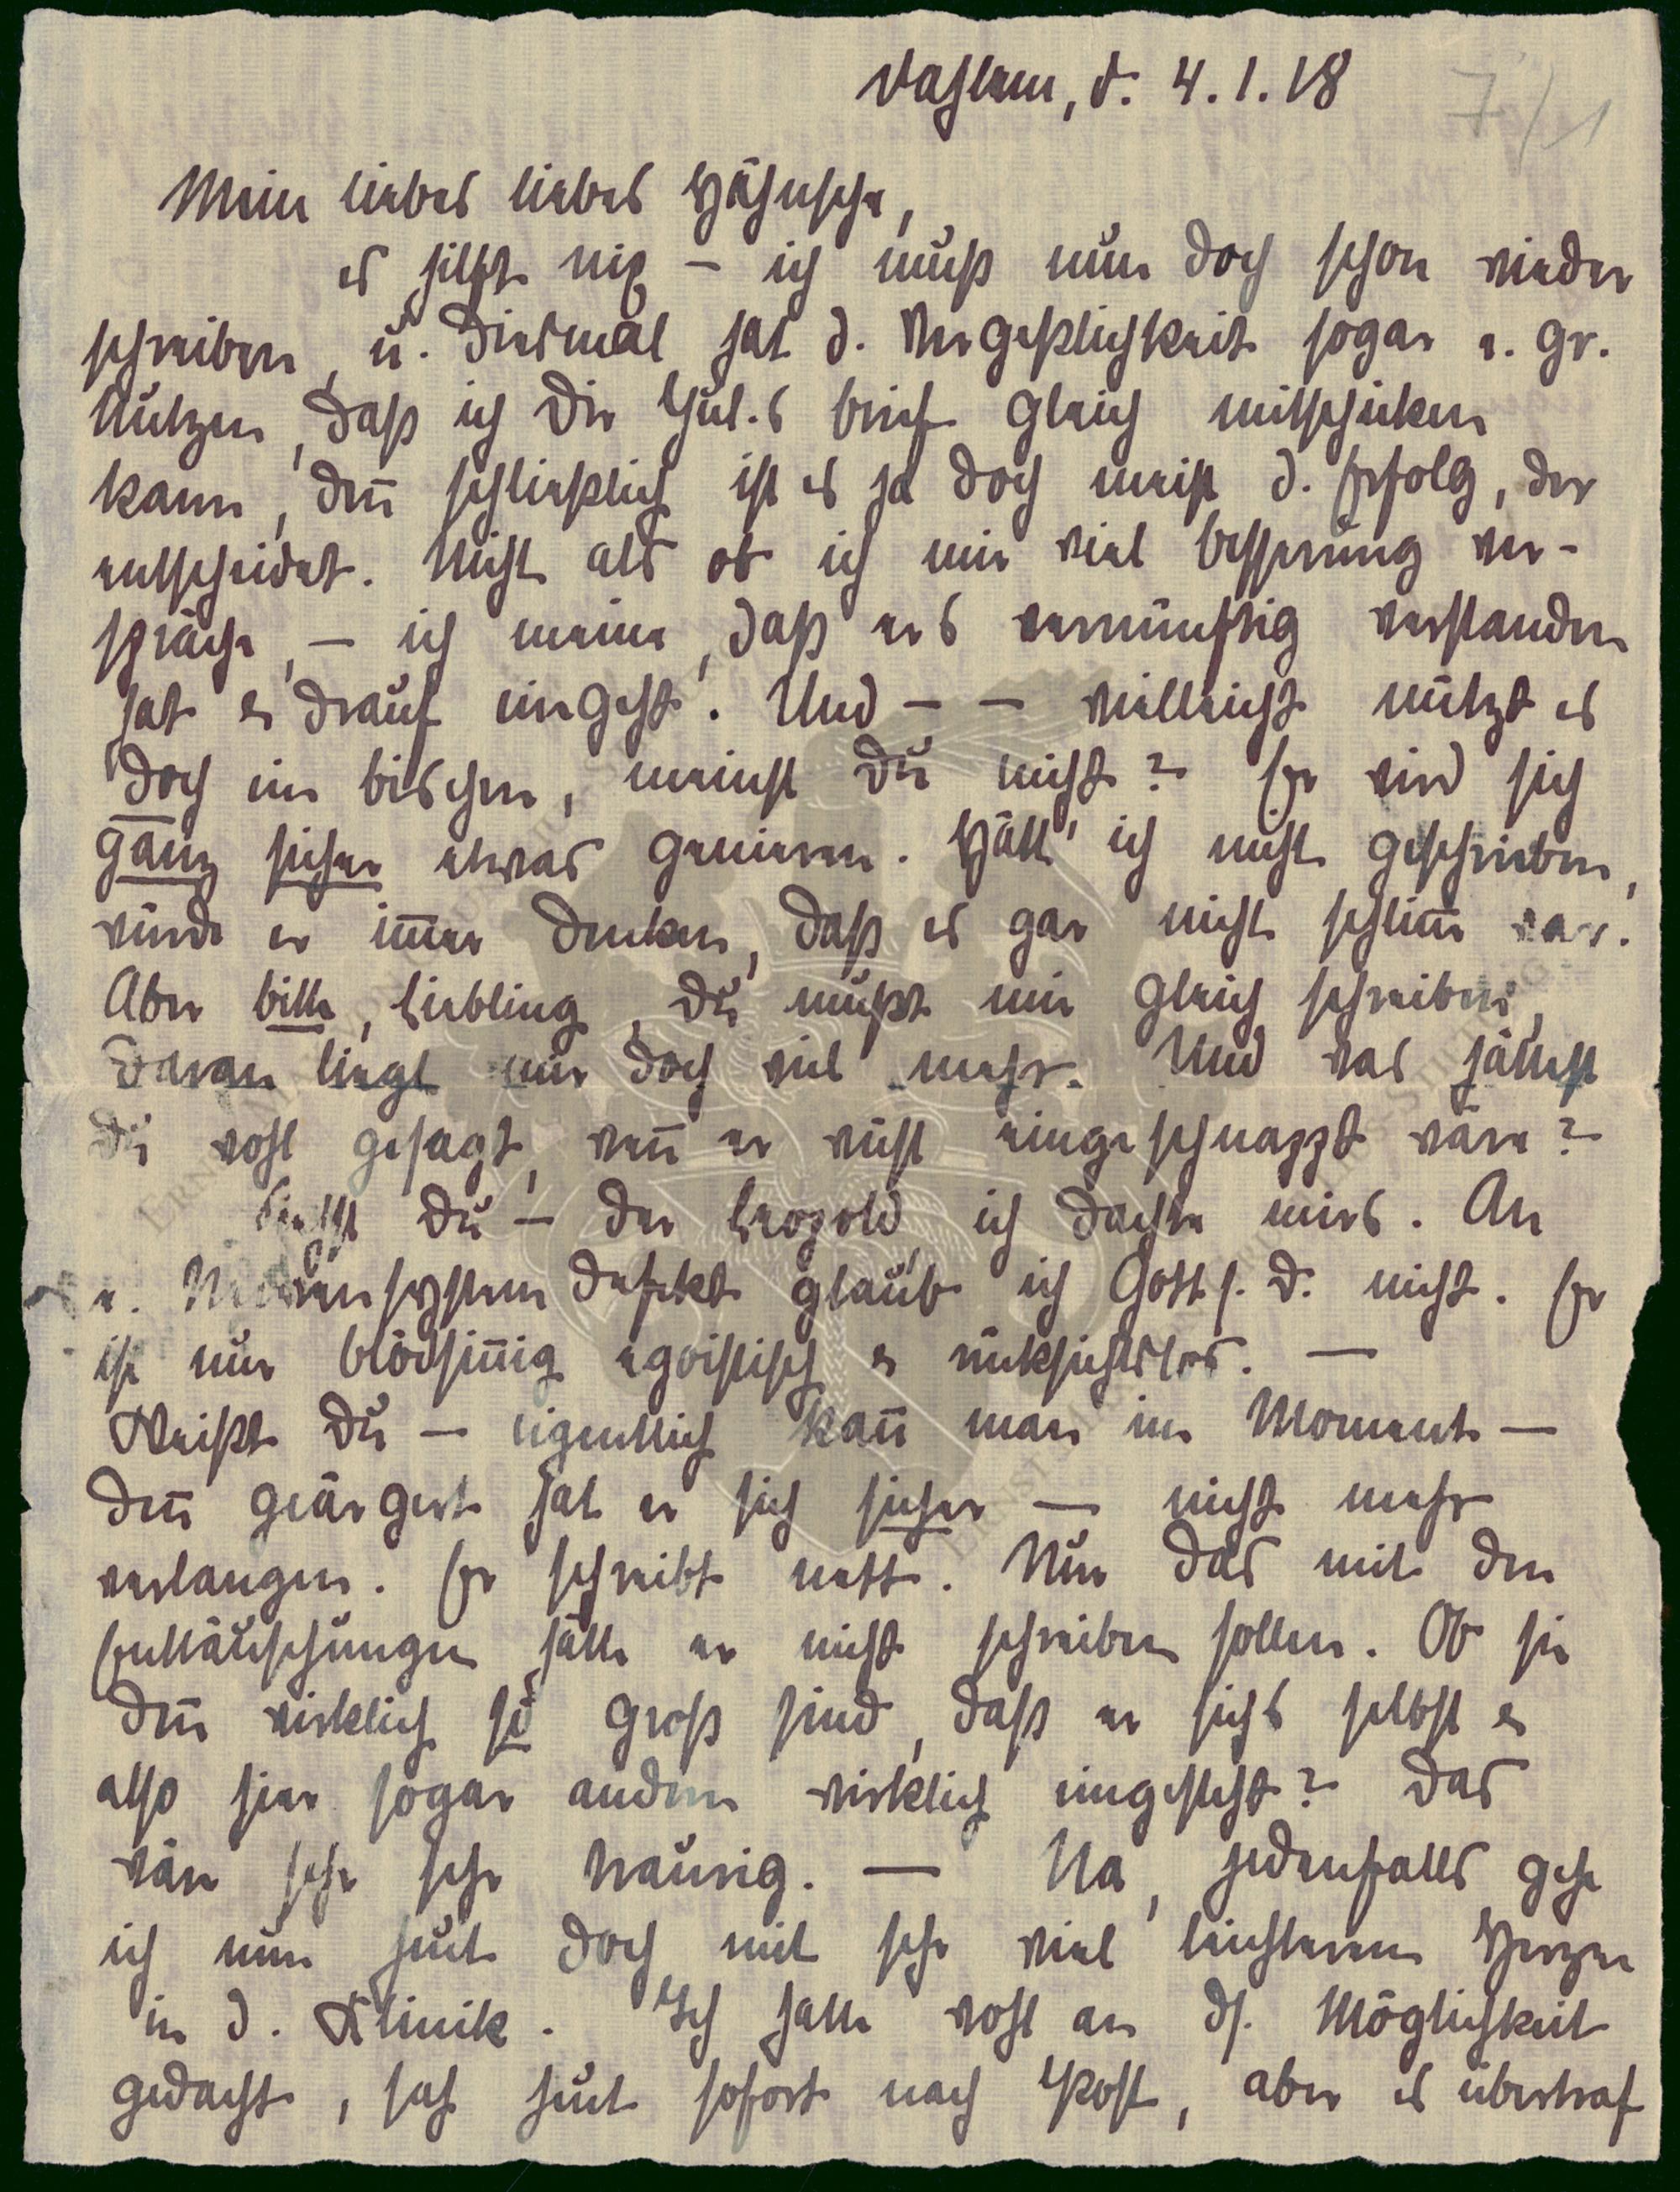 Dahlem, d. 4.1.18
7/1
Mein liebes liebes Hähnsche,
es hilft nix – ich muß nun doch schon wieder
schreiben, u. diesmal hat d. Vergeßlichkeit sogar e. gr.
Nutzen, daß ich Dir Jul.s Brief gleich mitschicken
kann, deñ schließlich ist es ja doch meist d. Erfolg, der
entscheidet. Nicht als ob ich mir viel Besserung ver-
spräche, – ich meine, daß er's vernünftig verstanden
hat & drauf eingeht. Und – – vielleicht nützt es
doch ein bischen, meinst Du nicht? Er wird sich
ganz sicher etwas genieren. Hätt' ich nicht geschrieben,
würde er im̃er denken, daß es gar nicht schlim̃ war.
Aber bitte, Liebling, Du mußt mir gleich schreiben,
daran liegt mir doch viel mehr. Und was hättest
Du wohl gesagt, weñ er nicht eingeschnappt wäre?
Siehst Du – der Leopold, ich dachte mirs. An
e. Nervensystem Defekt glaub ich Gott s. D. nicht. Er
ist nur blödsiñig egoistisch & rücksichtslos. —
Weißt Du – eigentlich kañ man im Moment –
deñ geärgert hat er sich sicher — nicht mehr
verlangen. Er schreibt nett. Nur das mit den
Enttäuschungen hätte er nicht schreiben sollen. Ob sie
deñ wirklich so groß sind, daß er sichs selbst &
also hier sogar andern wirklich eingesteht? Das
wäre sehr sehr traurig. — Na, jedenfalls gehe
ich nun heut doch mit sehr viel leichterem Herzen
in d. Klinik. Ich hatte wohl an ds. Möglichkeit
gedacht, sah heut sofort nach Post, aber es übertraf